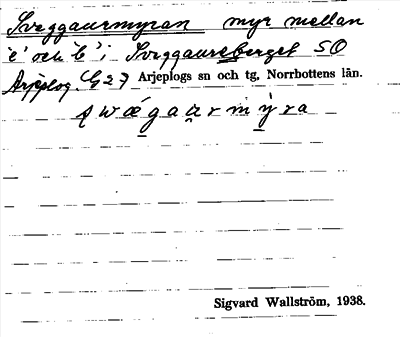 Sveggaurmyran myr mellan
'e' och 'b' i Sveggaureberget SO
Arjeplog. G27 Arjeplogs sn och tg, Norrbottens län.
s w ǽ g a u r m ỳ r a
Sigvard Wallström, 1938.